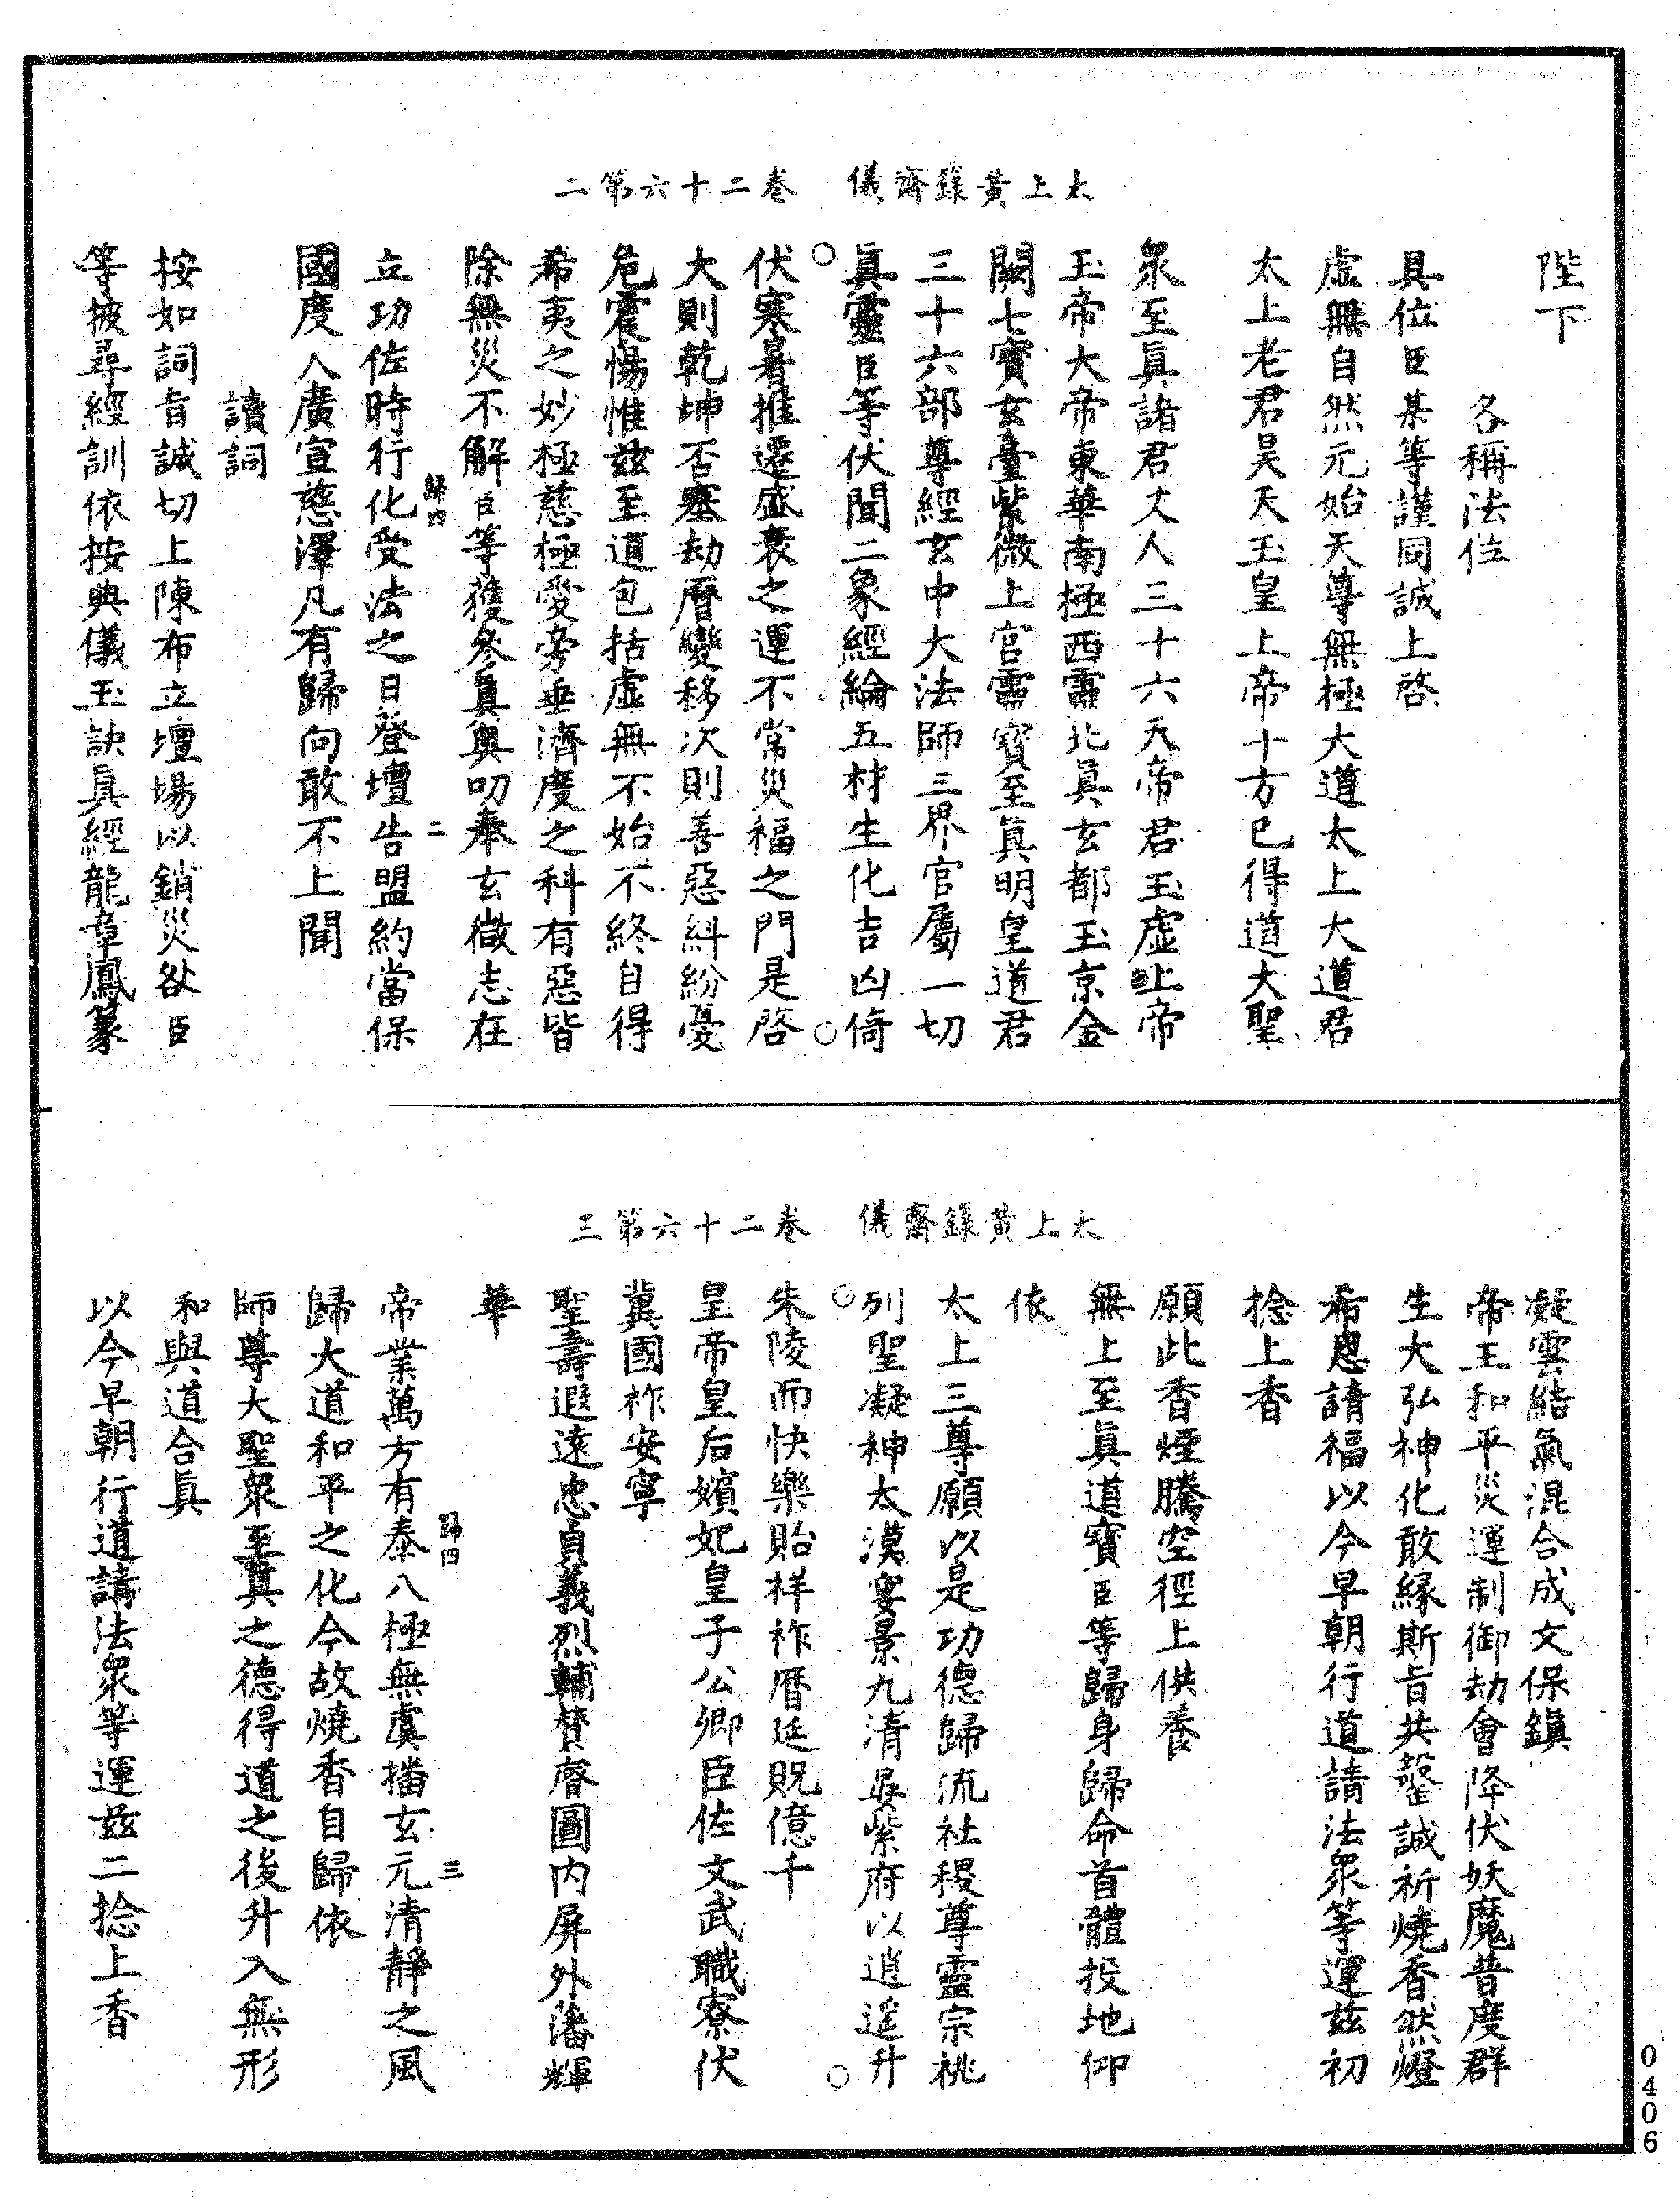 太上黃籙齋儀　卷二十六第二
陛下
各稱法位
具位臣某等謹同誠上啓
虛無自然元始天尊無極大道太上大道君
太上老君昊天玉皇上帝十方已得道大聖
眾至眞諸君丈人三十六天帝君玉虛上帝
玉帝大帝東華南極西靈北眞玄都玉京金
闕七寶玄臺紫微上宮靈寶至眞明皇道君
三十六部尊經玄中大法師三界官屬一切
眞靈臣等伏聞二象經綸五材生化吉凶倚
伏寒暑推遷盛衰之運不常災福之門是啓
大則乾坤否塞劫曆變移次則善惡糾紛憂
危震惕惟兹至道包括虛無不始不終自得
希夷之妙極慈極愛旁垂濟度之科有惡皆
除無災不解臣等獲參眞奧叨奉玄微志在
歸四　二
立功佐時行化受法之日登壇告盟約當保
國度人廣宣慈澤凡有歸向敢不上聞
讀詞
按如詞旨誠切上陳布立壇場以銷災咎臣
等披尋經訓依按典儀玉訣眞經龍章鳳篆
太上黃籙齋儀　卷二十六第三
凝雲結氣混合成文保鎭
帝王和平災運制御劫會降伏妖魔普度群
生大弘神化敢緣斯旨共罄誠祈燒香然燈
希恩請福以今早朝行道請法眾等運兹初
捻上香
願此香煙騰空徑上供養
無上至眞道寶臣等歸身歸命首體投地仰
依
太上三尊願以是功德歸流社稷尊靈宗祧
列聖凝神太漠宴景九清晏紫府以逍遙升
朱陵而快樂貽祥祚曆延貺億千
皇帝皇后嬪妃皇子公卿臣佐文武職寮伏
冀國祚安寧
聖壽遐遠忠貞義烈輔贊睿圖內屏外藩輝
華
歸四　三
帝業萬方有泰八極無虞播玄元清靜之風
歸大道和平之化今故燒香自歸依
師尊大聖眾至眞之德得道之後升入無形
和與道合眞
以今早朝行道請法眾等運兹二捻上香
0406